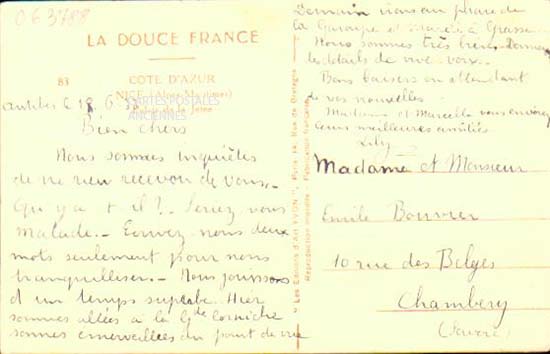 063788
LA DOUCE FRANCE
83 CÔTE D'AZUR
NICE (Alpes-Maritimes)
de la Jetée
CARTES POSTALES
ANCIENNES
Antibes le 18.6.
Bien chers
Nous sommes inquiètes
de ne rien recevoir de vous.-
Qu'y a t il ?. Seriez vous
malade.- Ecrivez-nous deux
mots seulement pour nous
tranquilliser.- Nous jouissons
d'un temps superbe. Hier
sommes allées à la Gde Corniche
sommes émerveillées du point de vue
Demain irons au phare de
la Garoupe et mardi à Grasse.-
Nous sommes très bien. Donnerons
les détails de vive-voix.-
Bons baisers en attendant
de vos nouvelles.
Madame et Marcelle vous envoient
leurs meilleures amitiés
Lily
Madame et Monsieur
Emile Bouvier
10 rue des Belges
Chambéry
(Savoie)
"Les Éditions d'Art YVON", Paris, Rue de Bretagne
Reproduction interdite - Fabrication française